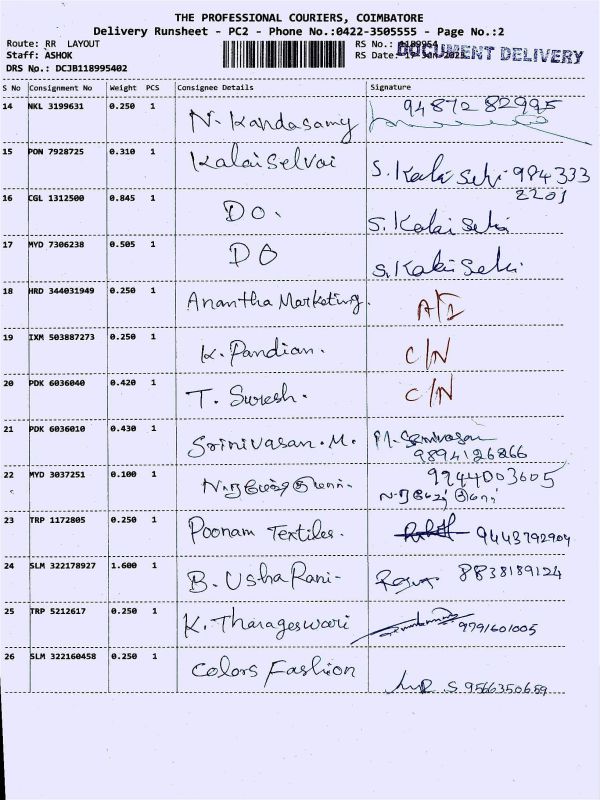 THE PROFESSIONAL COURIERS, COIMBATORE
Delivery Runsheet - PC2 - Phone No.:0422-3505555 - Page No.:2
Route: RR LAYOUT
Staff: ASHOK
DRS No.: DCJB118995402
RS No.:
RS Date:
DOCUMENT DELIVERY
S No Consignment No Weight PCS Consignee Details Signature
14 NKL 3199631 0.250 1 N. Kandasamy 94872 82995
15 PON 7928725 0.310 1 Kalaiselvai S. Kalai Selvi 984333
2201
16 CGL 1312500 0.845 1 DO. S. Kalai Selvi
17 MYD 7306238 0.505 1 DO S. Kalai Selvi
18 HRD 344031949 0.250 1 Anantha Marketing.
19 IXM 503887273 0.250 1 K. Pandian. C/N
20 PDK 6036040 0.420 1 T. Suresh. C/N
21 PDK 6036010 0.430 1 Srinivasan. M. M. Srinivasan
9894126866
22 MYD 3037251 0.100 1 9944003605
23 TRP 1172805 0.250 1 Poonam Textiles. 9443792904
24 SLM 322178927 1.600 1 B. Usha Rani- 8838189124
25 TRP 5212617 0.250 1 K. Tharageswari 9791601005
26 SLM 322160458 0.250 1 Colors Fashion S 9566350659